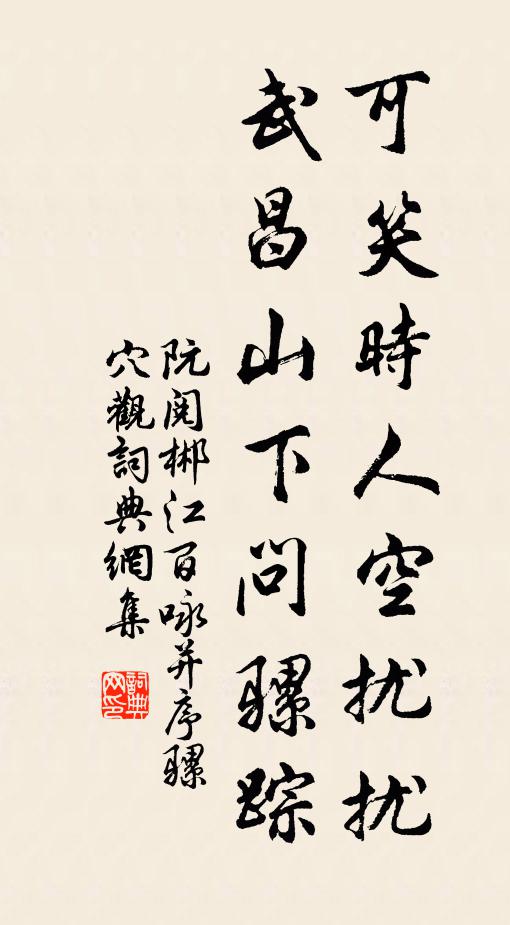 可笑時人空扰扰
武昌山下問騾踪
阮閱郴江百咏并序騾
穴觀詞典網集
詞典网印